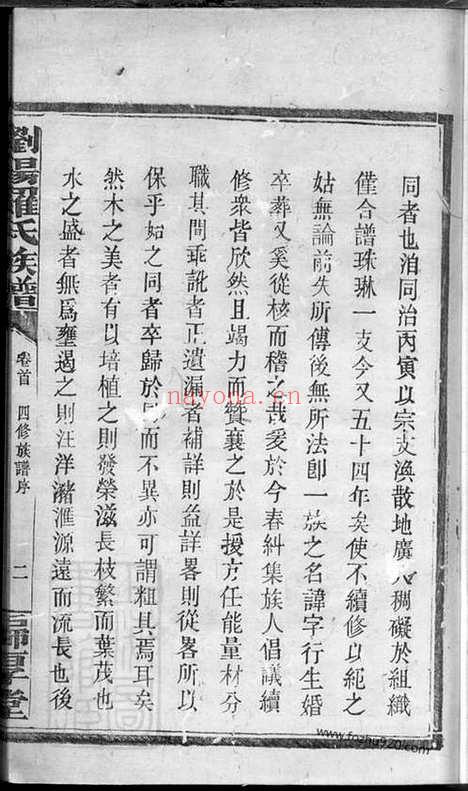 同者也洎同治丙寅以宗支渙散地廣人稠礙於組織
僅合譜珠琳一支今又五十四年矣使不續修以紀之
姑無論前失所傳後無所法卽一族之名諱字行生婚
卒葬又奚從核而稽之哉爰於今春糾集族人倡議續
修衆皆欣然且竭力而贊襄之於是援方任能量材分
職其間乖訛者正遺漏者補詳則益詳畧則從畧所以
保乎始之同者卒歸於同而不異亦可謂粗具焉耳矣
然木之美者有以培植之則發榮滋長枝繁而葉茂也
水之盛者無爲壅遏之則汪洋瀦滙源遠而流長也後
劉陽羅氏族譜
卷首 四修族譜序
二
nayona.cn
www.fozhu920.com